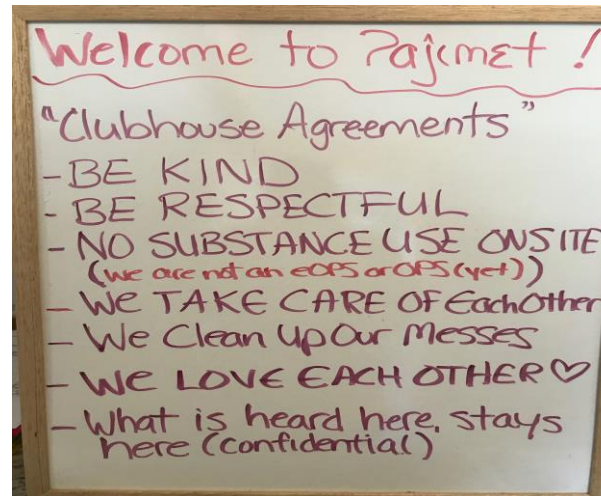 Welcome to Pajcmet !
"Clubhouse Agreements"
- BE KIND
- BE RESPECTFUL
- NO SUBSTANCE USE ONSITE
(we are not an eOPS or OPS (yet))
- We TAKE CARE OF Each Other
- We Clean Up Our Messes
- We LOVE EACH OTHER ♡
- What is heard here, stays
here (confidential)